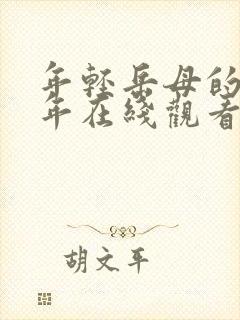 年轻岳母的
年在线观看
胡文平